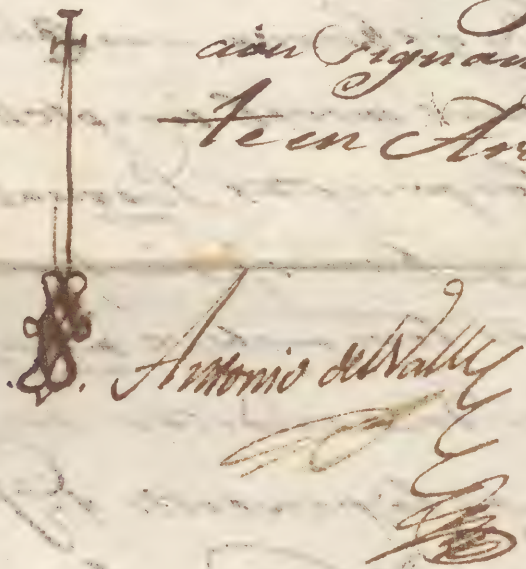 cion signan
te en Ar
Antonio del Valle